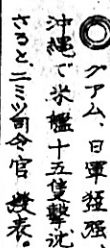 ◎グアム、日軍猛烈
沖縄で米艦十五隻撃沈
さると、ニミツ司令官発表。